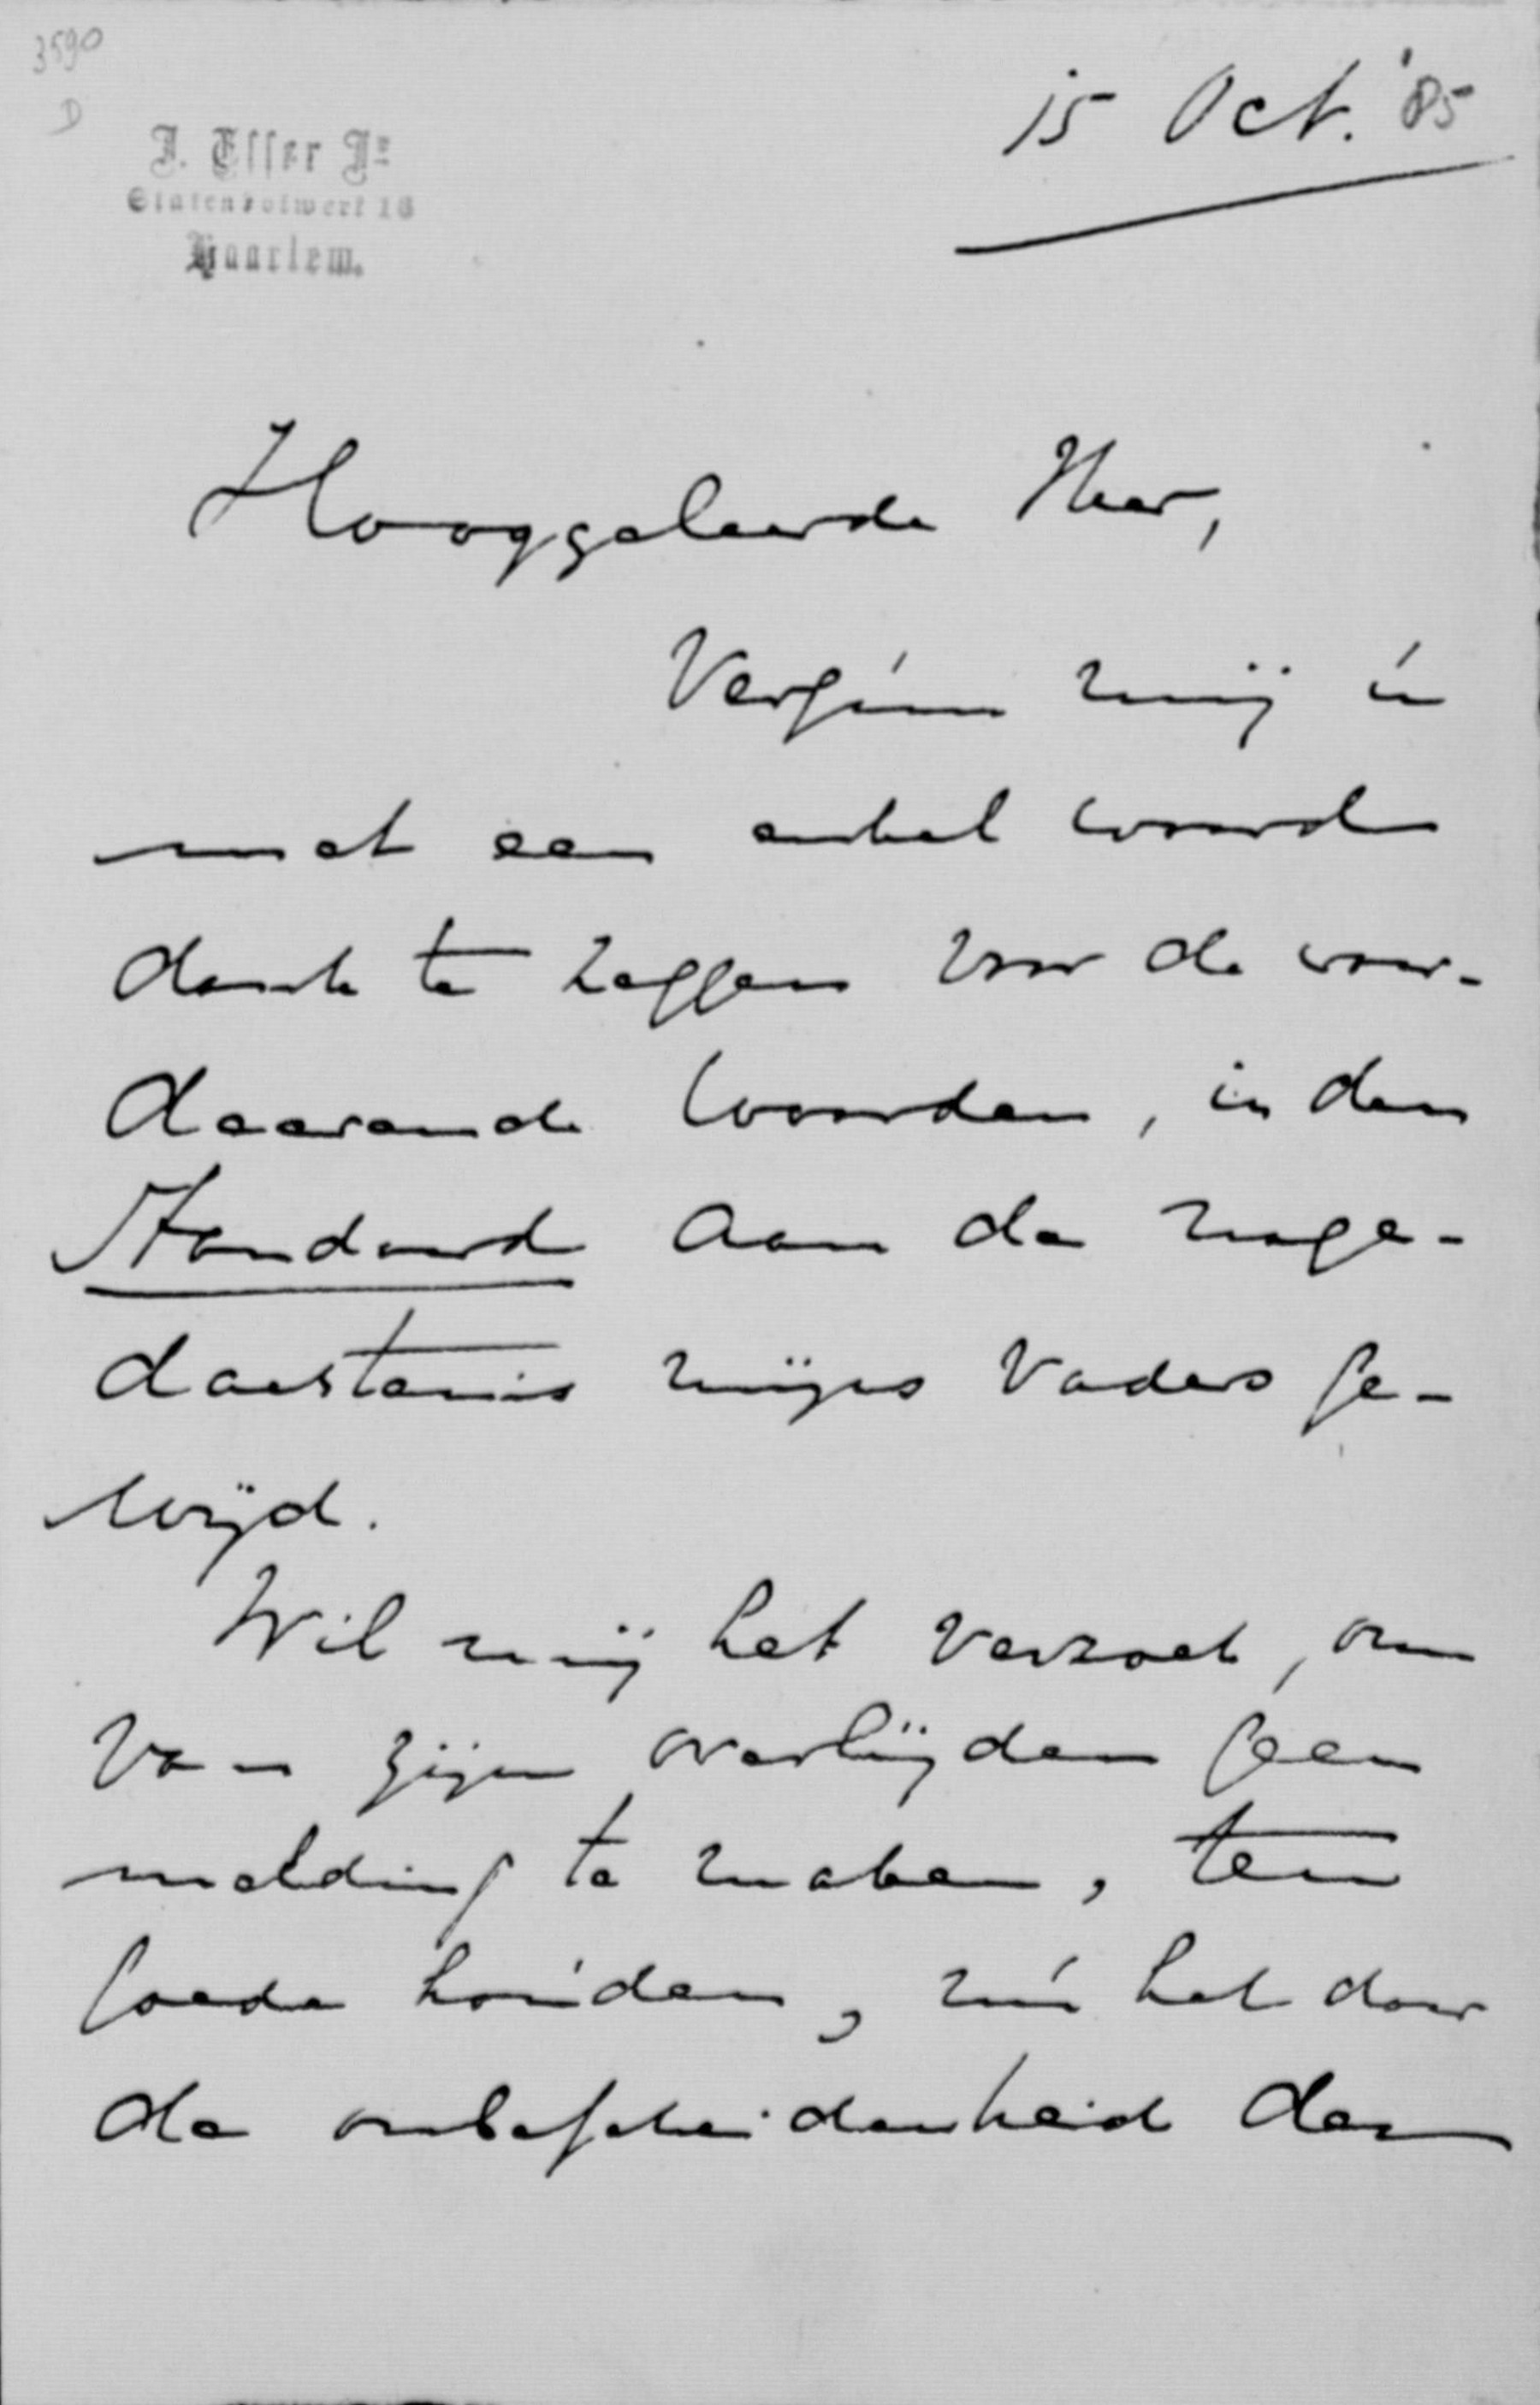 3590
D
15 Oct. '85
J. Esser Jr
Statenbolwerk 16
Haarlem.
Hooggeleerde Heer,
Vergun mij u
met een enkel woord
dank te zeggen voor de waar-
deerende woorden, in den
Standaard aan de nage-
dachtenis mijns Vaders ge-
wijd.
Wil mij het verzoek, om
van zijn overlijden geen
melding te maken, ten
goede houden, nu het door
de onbescheidenheid der